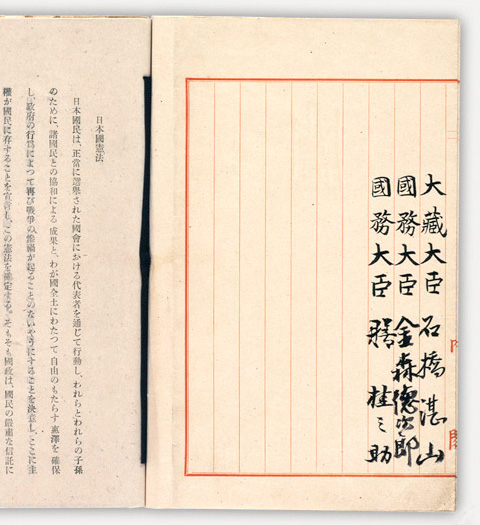 大藏大臣 石橋湛山
國務大臣 金森德次郎
國務大臣 膳 桂之助
日本國憲法
日本國民は、正當に選擧された國會における代表者を通じて行動し、われらとわれらの子孫
のために、諸國民との協和による成果と、わが國全土にわたつて自由のもたらす惠澤を確保
し、政府の行爲によつて再び戰爭の慘禍が起ることのないやうにすることを決意し、ここに主
權が國民に存することを宣言し、この憲法を確定する。そもそも國政は、國民の嚴肅な信託に